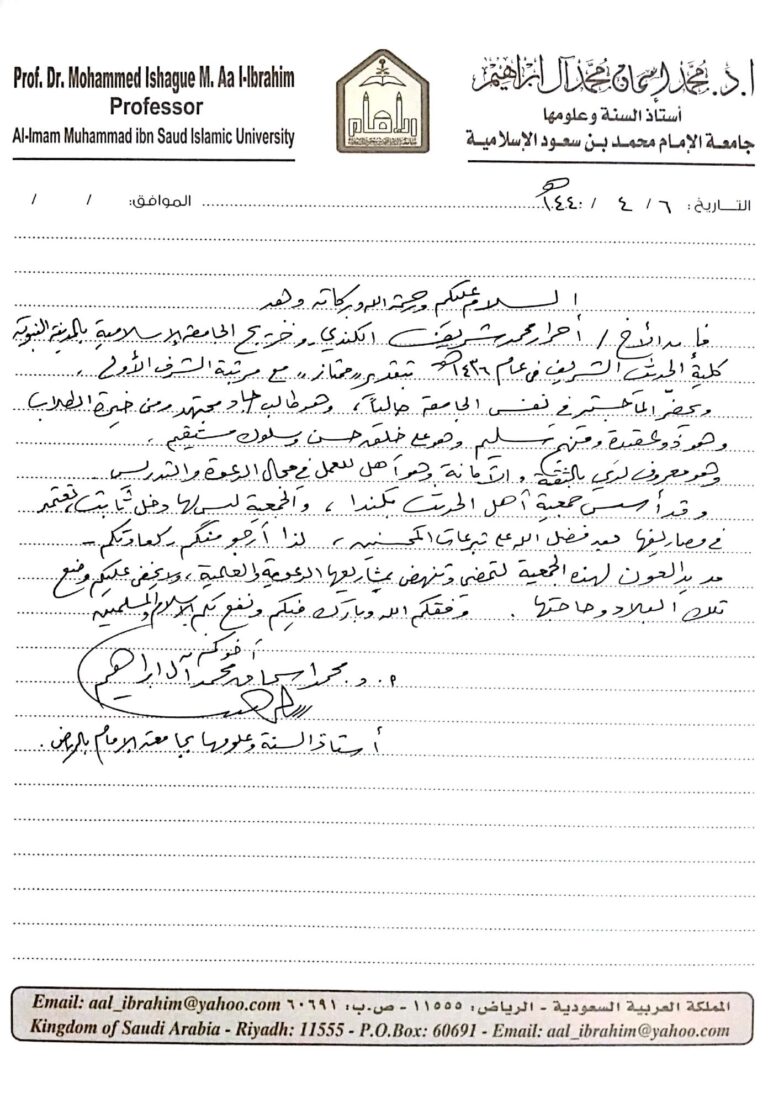 Prof. Dr. Mohammed Ishague M. Aa l-Ibrahim
Professor
Al-Imam Muhammad ibn Saud Islamic University
أ.د. محمد إسحاق محمد آل إبراهيم
أستاذ السنة وعلومها
جامعة الإمام محمد بن سعود الإسلامية
التاريخ: ٦ / ٤ / ١٤٤٠هـ الموافق: / /
السلام عليكم ورحمة الله وبركاته وبعد
فإن الأخ / أحرار محمد شريف الكندي خريج الجامعة الإسلامية بالمدينة النبوية
كلية الحديث الشريف في عام ١٤٣٦هـ بتقدير "ممتاز" مع مرتبة الشرف الأولى.
ويحضّر الماجستير في نفس الجامعة حالياً، وهو طالب جاد ومجتهد ومن خيرة الطلاب
وهو ذو عقيدة ومنهج سليم وهو على خلق حسن وسلوك مستقيم.
وهو معروف لدي بالثقة والأمانة وهو أهل للعمل في مجال الدعوة والتدريس.
وقد أسس جمعية أهل الحديث بكندا، والجمعية ليس لها دخل ثابت، تعتمد
في مصاريفها بعد فضل الله على تبرعات المحسنين، لذا أرجو منكم ـ كعادتكم ـ
مد يد العون لهذه الجمعية لتمضي وتنهض بمشاريعها الدعوية والعلمية، ولا يخفى عليكم وضع
تلك البلاد وحاجتها. وفقكم الله وبارك فيكم ونفع بكم الإسلام والمسلمين
أخوكم
أ. د. محمد إسحاق محمد آل إبراهيم
أستاذ السنة وعلومها بجامعة الإمام بالرياض.
Email: aal_ibrahim@yahoo.com المملكة العربية السعودية - الرياض: ١١٥٥٥ - ص.ب: ٦٠٦٩١
Kingdom of Saudi Arabia - Riyadh: 11555 - P.O.Box: 60691 - Email: aal_ibrahim@yahoo.com